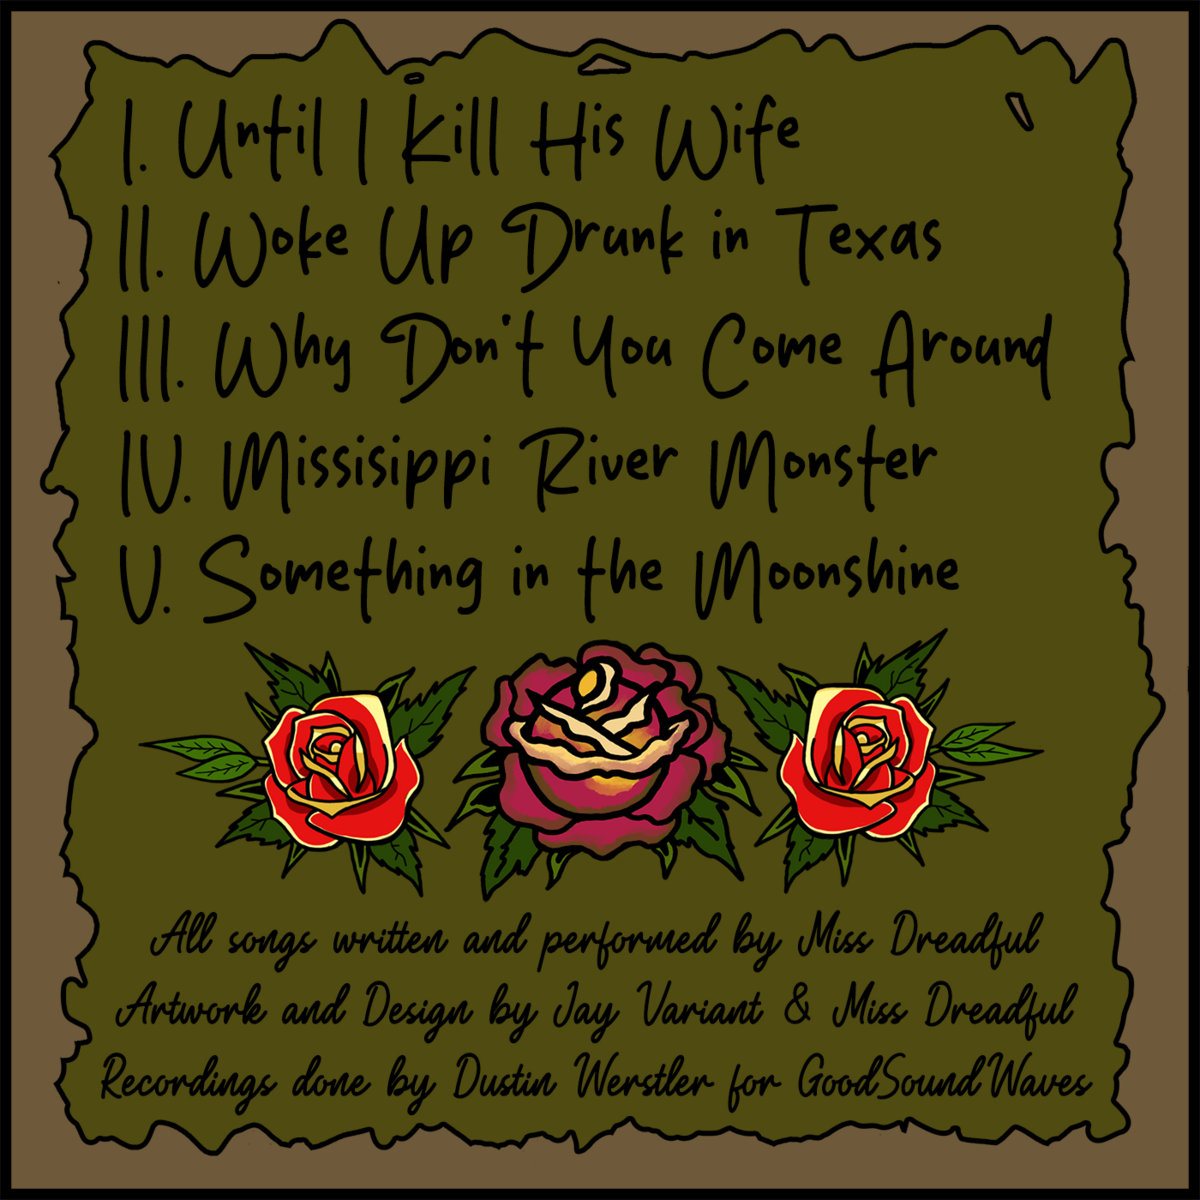 I. Until I Kill His Wife
II. Woke Up Drunk in Texas
III. Why Don't You Come Around
IV. Missisippi River Monster
V. Something in the Moonshine
All songs written and performed by Miss Dreadful
Artwork and Design by Jay Variant & Miss Dreadful
Recordings done by Dustin Werstler for GoodSoundWaves